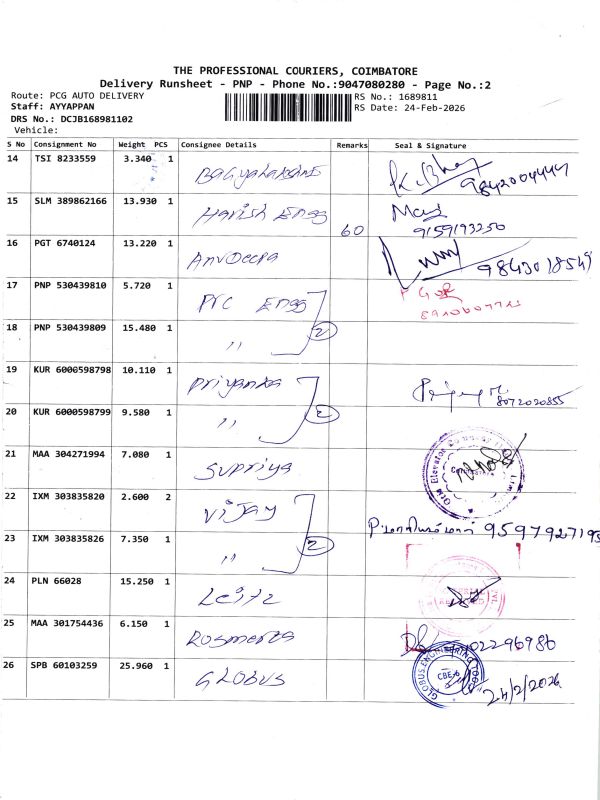 THE PROFESSIONAL COURIERS, COIMBATORE
Delivery Runsheet - PNP - Phone No.:9047080280 - Page No.:2
Route: PCG AUTO DELIVERY
RS No.: 1689811
Staff: AYYAPPAN
RS Date: 24-Feb-2026
DRS No.: DCJB168981102
Vehicle:
S No Consignment No Weight PCS Consignee Details Remarks Seal & Signature
14 TSI 8233559 3.340 1
9842004447
15 SLM 389862166 13.930 1 Harish Engg 60
9159193250
16 PGT 6740124 13.220 1
9843018549
17 PNP 530439810 5.720 1 PTC Engg
18 PNP 530439809 15.480 1 " 2
19 KUR 6000598798 10.110 1 Priyanka
8072020855
20 KUR 6000598799 9.580 1 " 2
21 MAA 304271994 7.080 1 Supriya
22 IXM 303835820 2.600 2 Vijay
9597927195
23 IXM 303835826 7.350 1 " 2
24 PLN 66028 15.250 1 Leitz
25 MAA 301754436 6.150 1 Rosmerta
26 SPB 60103259 25.960 1 GLOBUS
GLOBUS ENGINEERING TOOLS
CBE-6
24/2/2026